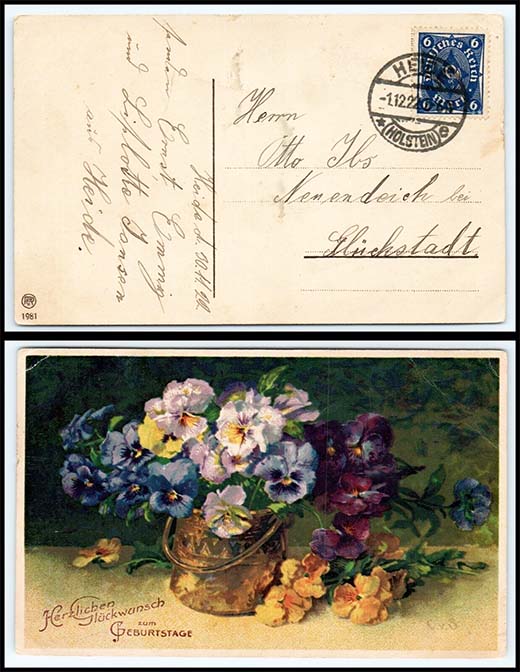 Deutsches Reich
6 6
Mark
HEIDE
-1.12.22
(HOLSTEIN)
Herrn
Otto Ibs
Neuendeich bei
Glückstadt.
Heide d. 30.11.22.
Ernst Emmy
und Lisßlotte Jansen
aus Heide.
1981
Herzlichen
Glückwunsch
zum
Geburtstage